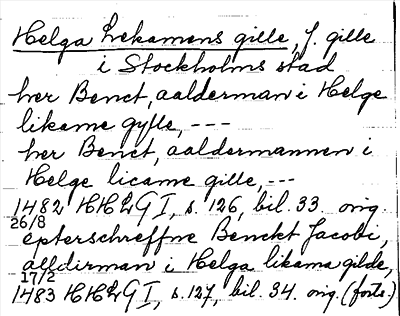 Helga Lekamens gille, f. gille
i Stockholms stad
her Benct, aalderman i Helge
likame gylle, ---
her Benct, aaldermannen i
Helge licame gille, ---
1482 HHLG I, s. 126, bil. 33. orig.
26/8
epterschreffne Benckt Jacobi,
alldirman i Helga likama gilde,
17/2
1483 HHLG I, s. 127, bil. 34. orig. (forts.)